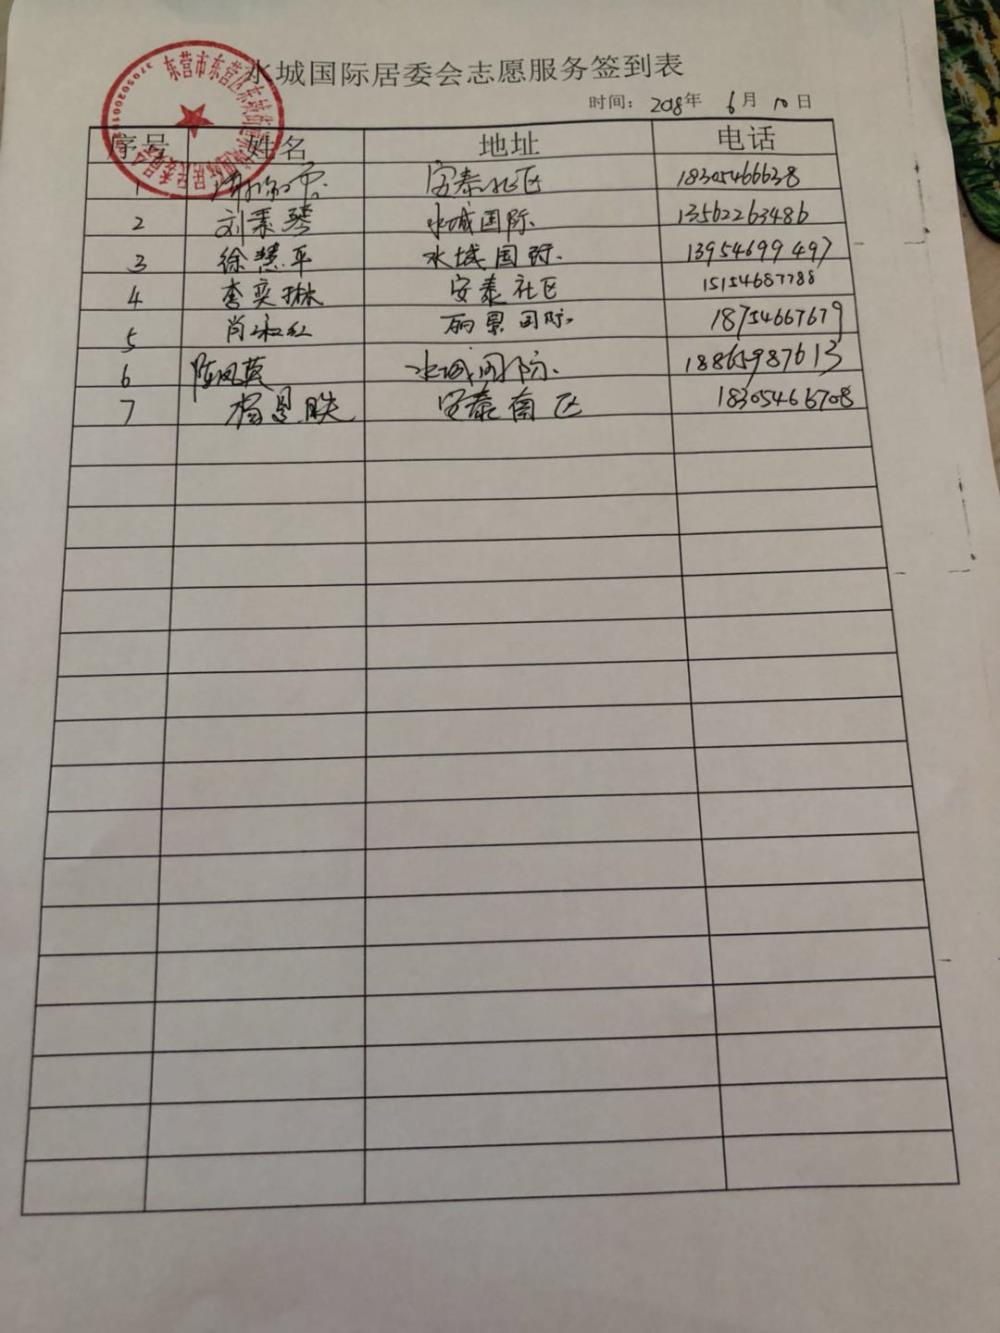 水城国际居委会志愿服务签到表
时间: 2018年 6月 10日
序号 姓名 地址 电话
1 安泰北区 18305466638
2 刘秉琴 水城国际 13562263486
3 徐慧平 水城国际. 13954699497
4 李奕琳 安泰社区 15154687788
5 肖淑红 丽景国际. 18754667679
6 陈凤英 水城国际. 18865987613
7 杨恩 安泰南区 18305466708